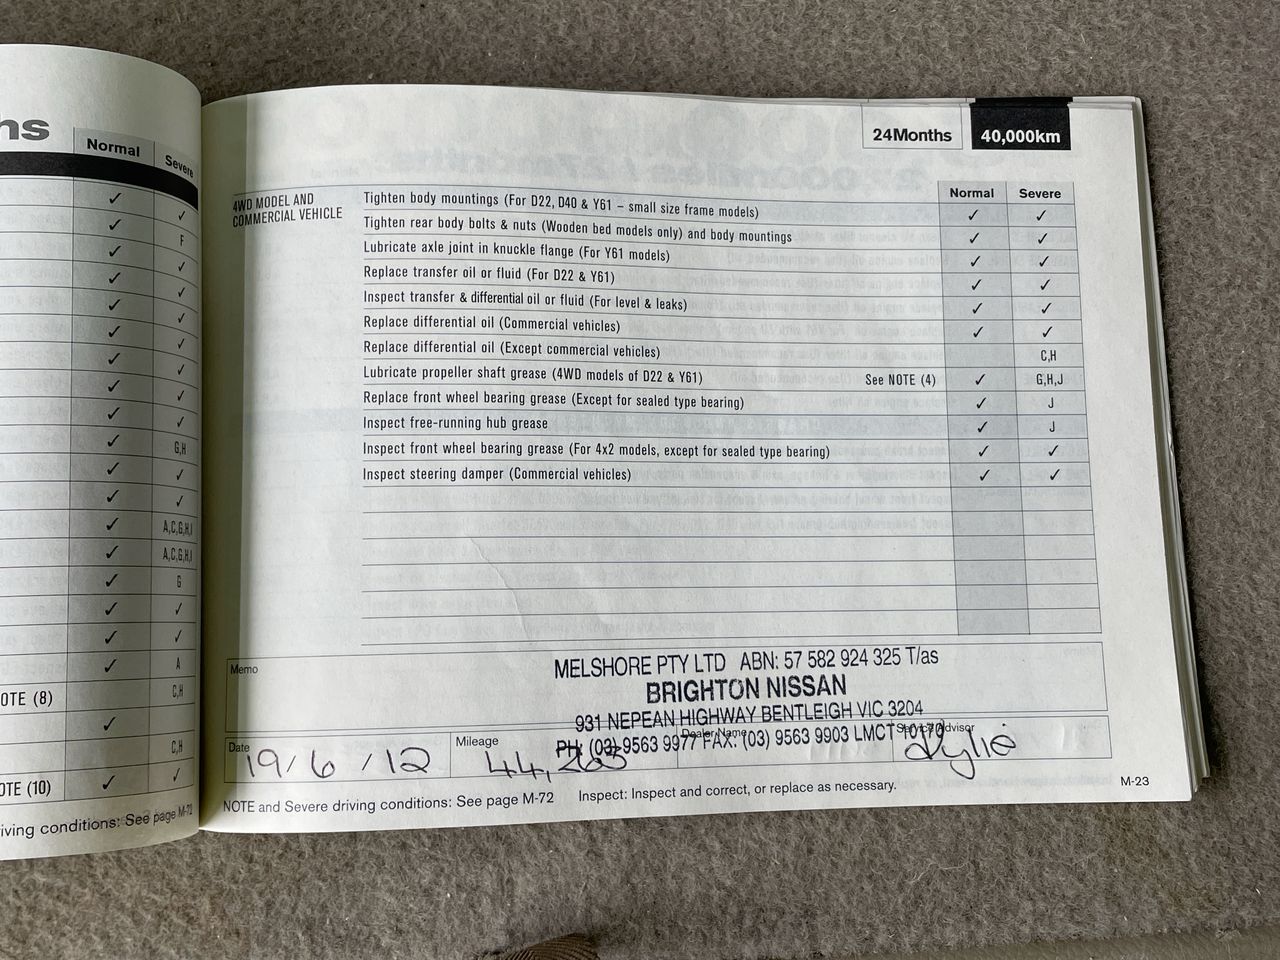 ns
Normal
Severe
✓ ✓
✓ F
✓ ✓
✓ ✓
✓ ✓
✓ ✓
✓ ✓
✓ ✓
✓ ✓
✓ G,H
✓ ✓
✓ ✓
✓ A,C,G,H,I
✓ A,C,G,H,I
✓ G
✓ ✓
✓ ✓
✓ A
OTE (8) C,H
✓
C,H
OTE (10) ✓ ✓
iving conditions: See page M-72
24Months 40,000km
Normal Severe
4WD MODEL AND
COMMERCIAL VEHICLE
Tighten body mountings (For D22, D40 & Y61 – small size frame models) ✓ ✓
Tighten rear body bolts & nuts (Wooden bed models only) and body mountings ✓ ✓
Lubricate axle joint in knuckle flange (For Y61 models) ✓ ✓
Replace transfer oil or fluid (For D22 & Y61) ✓ ✓
Inspect transfer & differential oil or fluid (For level & leaks) ✓ ✓
Replace differential oil (Commercial vehicles) ✓ ✓
Replace differential oil (Except commercial vehicles) C,H
Lubricate propeller shaft grease (4WD models of D22 & Y61) See NOTE (4) ✓ G,H,J
Replace front wheel bearing grease (Except for sealed type bearing) ✓ J
Inspect free-running hub grease ✓ J
Inspect front wheel bearing grease (For 4x2 models, except for sealed type bearing) ✓ ✓
Inspect steering damper (Commercial vehicles) ✓ ✓
Memo
MELSHORE PTY LTD ABN: 57 582 924 325 T/as
BRIGHTON NISSAN
931 NEPEAN HIGHWAY BENTLEIGH VIC 3204
PH: (03) 9563 9977 FAX: (03) 9563 9903 LMCT
Date 19/6/12
Mileage 44,
Dealer Name
Service Advisor Kylie
NOTE and Severe driving conditions: See page M-72 Inspect: Inspect and correct, or replace as necessary.
M-23